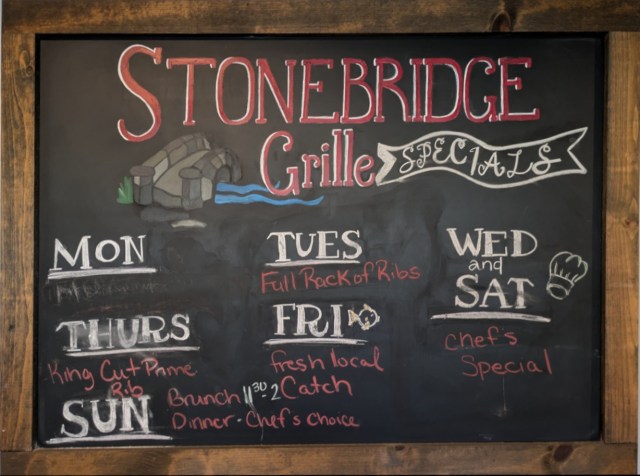 STONEBRIDGE
Grille
SPECIALS
MON
TUES
Full Rack of Ribs
WED
and
SAT
Chef's
Special
THURS
King Cut Prime
Rib
FRI
fresh local
Catch
SUN
Brunch 11 30 - 2
Dinner - Chef's Choice